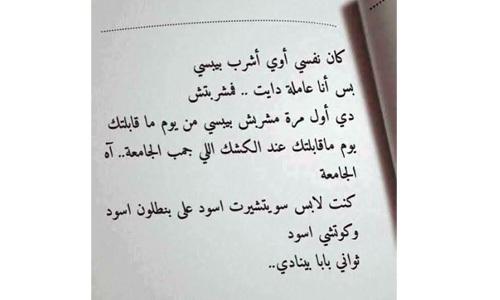 كان نفسي أوي أشرب بيبسي
بس أنا عاملة دايت .. فمشربتش
دي أول مرة مشربش بيبسي من يوم ما قابلتك
يوم ماقابلتك عند الكشك اللي جمب الجامعة.. آه
الجامعة
كنت لابس سويتشيرت اسود على بنطلون اسود
وكوتشي اسود
ثواني بابا بينادي..